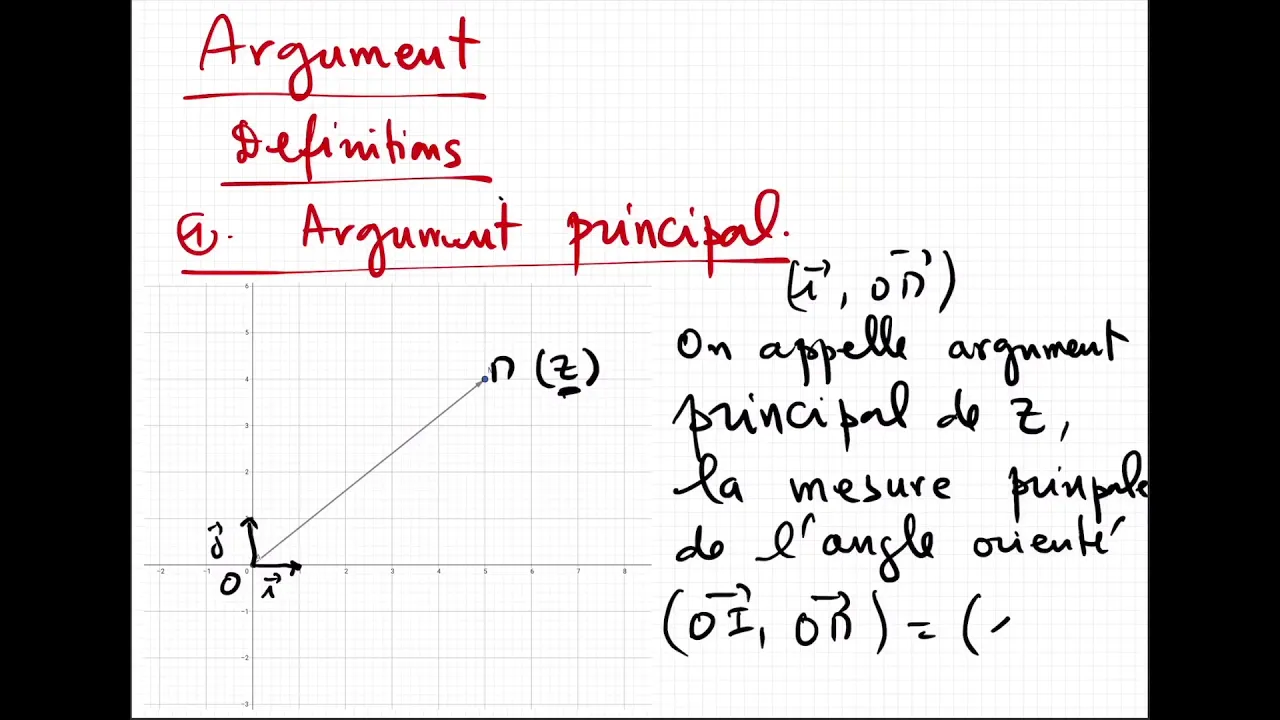 Argument
Definitions
①. Argument principal.
(i⃗, OM⃗)
On appelle argument
principal de z,
la mesure prinpale
de l'angle orienté
(OI⃗, OM⃗) = (
M (z)
j⃗
O i⃗
6
5
4
3
2
1
-2 -1 0 2 3 4 5 6 7 8
-1
-2
-3